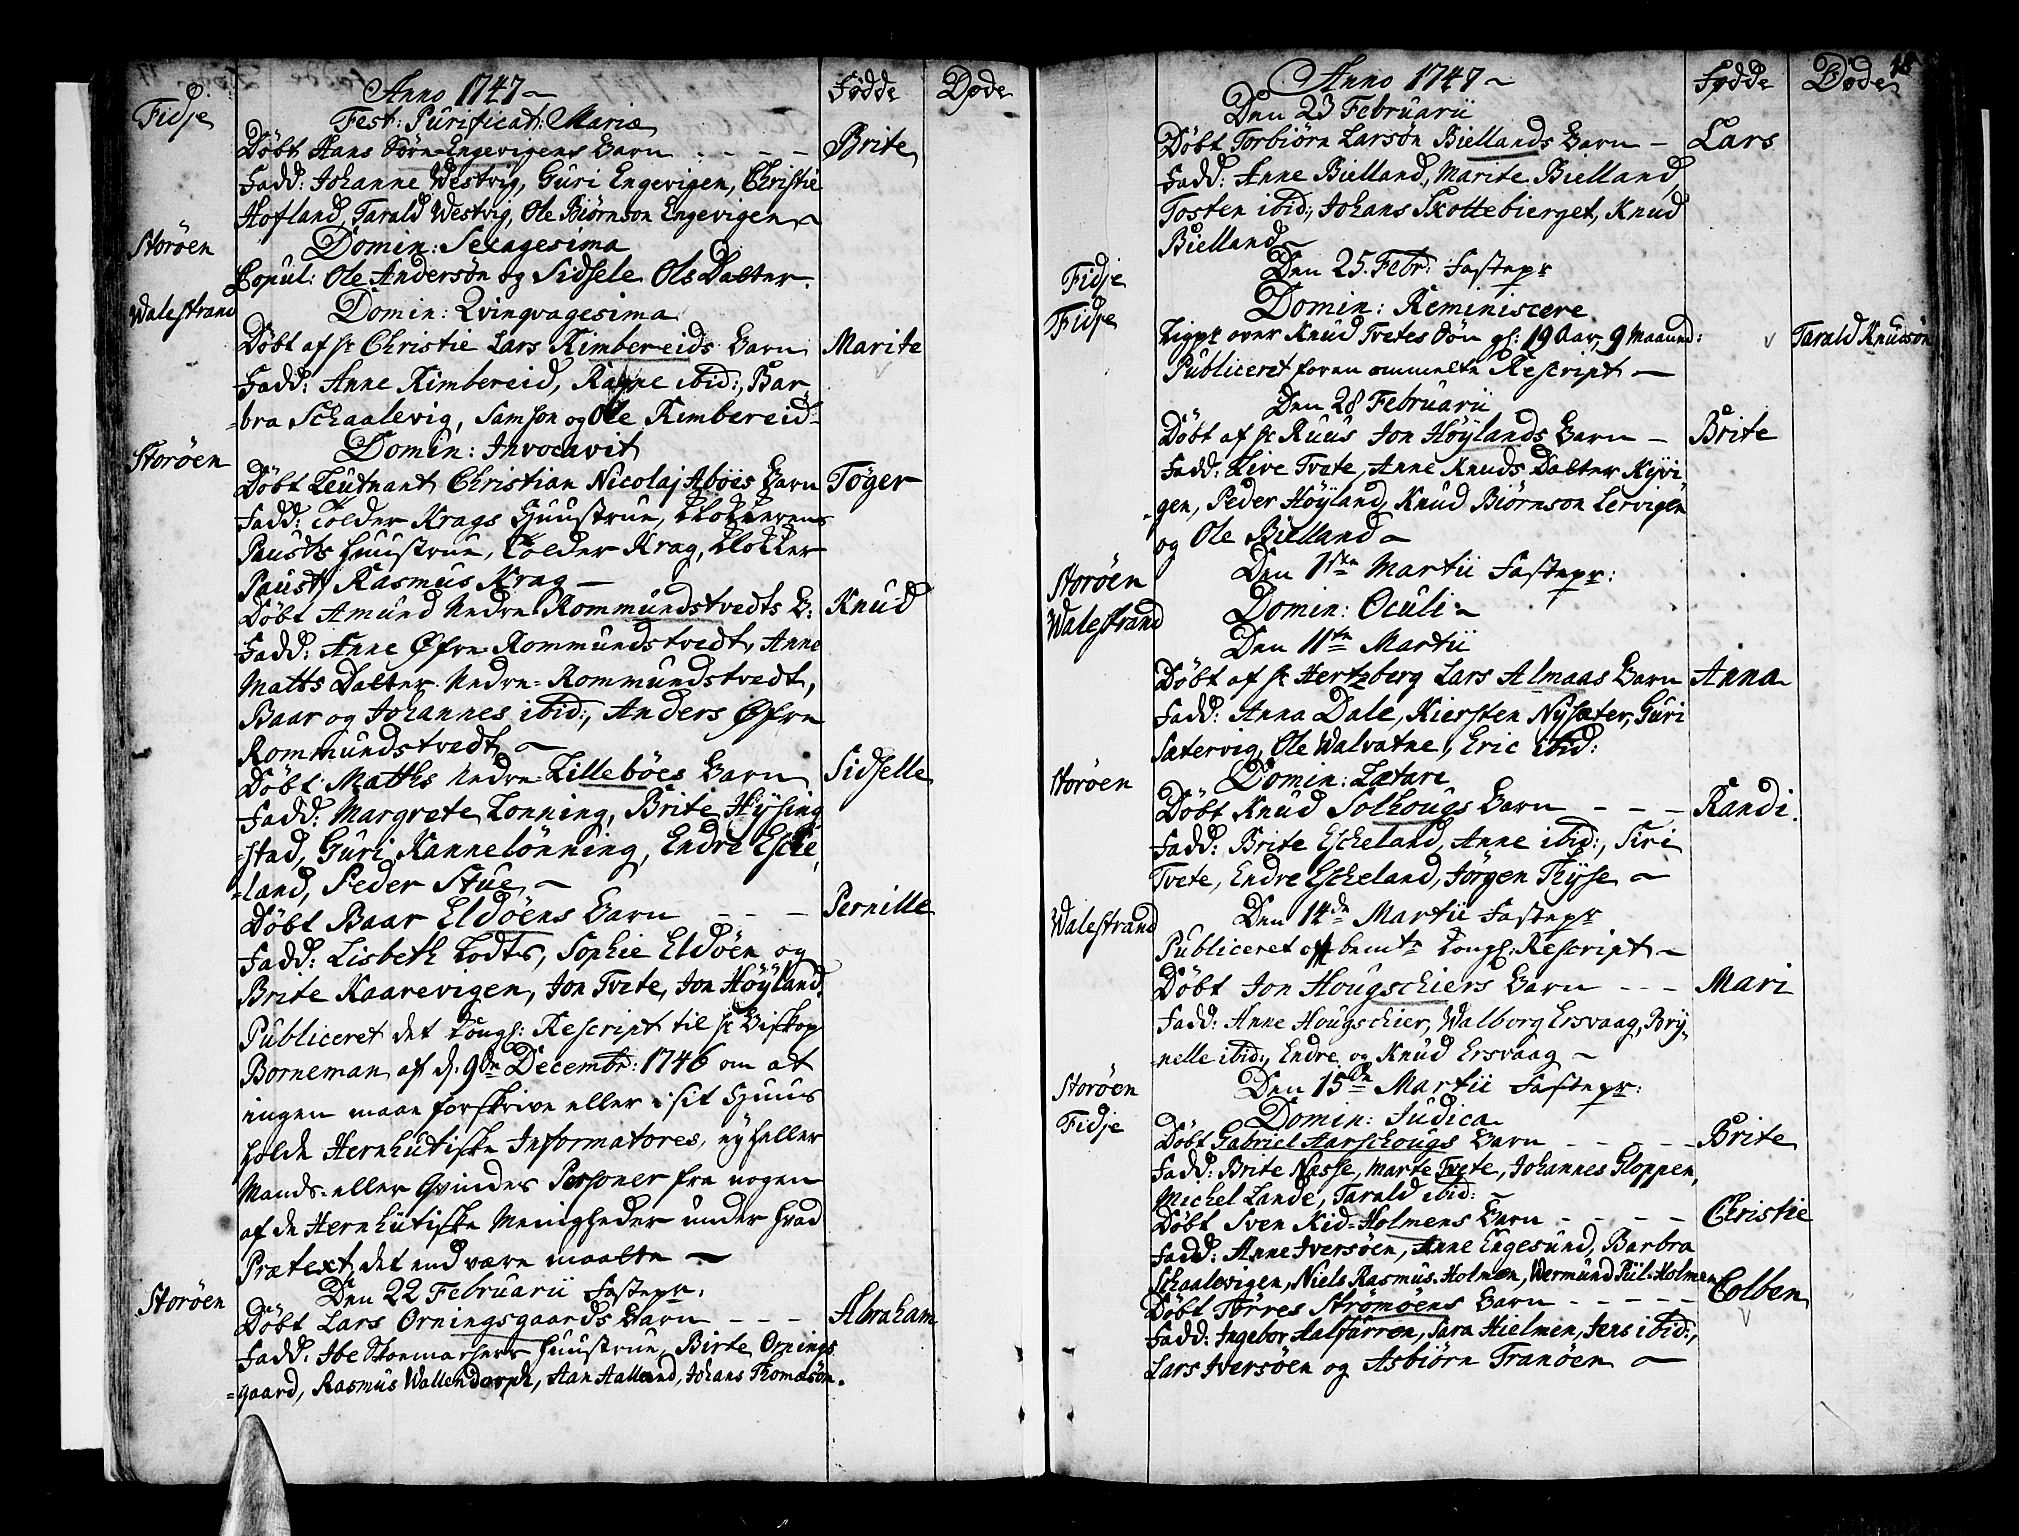 Anno 1747
Fødde
Døde
Fidje
Fest: Purificat: Mariæ
Døbt Hans Sørn-Engevigens Barn - - - Brite
Fadd: Johanne Westvig, Guri Engevigen, Christie
Hofland, Tarald Westvig, Ole Biørnson Engevigen
Storøen
Domin: Sexagesima
Copul: Ole Andersøn og Sidsele Ols Datter.
Walestrand
Domin: Qvinqvagesima
Døbt af hr Christie Lars Kimbereids Barn Marite
Fadd: Anne Kimbereid, Ragne ibid:, Bar
bra Schaalevig, Samson og Ole Kimbereid
Storøen
Domin: Invocavit
Døbt Leutnant Christian Nicolaj Aböes Barn Töger
Fadd: Tolder Krags Huustrue, Klokkerens
Pausts Huustrue, Tolder Krag, Klokker
Paust, Rasmus Krag
Døbt Amund Nedre Rommundstvedts B: Knud
Fadd: Anne Øfre Rommundstvedt, Anne
Matts Datter Nedre-Rommundstvedt,
Baar og Johannes ibid:, Anders Øfre
Rommundstvedt
Døbt Matths Nedre-Lillebøes Barn Sidselle
Fadd: Margrete Lonning, Brite Hÿsing
stad, Guri Kannelönning, Endre Esche
land, Peder Stue
Døbt Baar Eldøens Barn - - - Pernille
Fadd: Lisbeth Lodts, Sophie Eldøen og
Brite Kaarevigen, Jon Tvete, Jon Høÿland
Publiceret det Kongl: Rescript til hr Biskop
Borneman af d. 9de Decembr: 1746 om at
ingen maae forskrive eller i sit Huus
holde Hernhutiske Informatores, eÿ heller
Mands- eller Qvindes Personer fra nogen
af de Hernhutiske Menigheder under hvad
Prætext det end være maatte
Storøen
Den 22 Februarii Fastepr.
Døbt Lars Orningsgaards Barn - - - Abraham
Fadd: Huustrue, Birte Ornings
gaard, Rasmus Wallendorph, Aan Aalland, Johans Thomæsøn.
Anno 1747
Fødde
Døde
Den 23 Februarii
Døbt Torbiørn Larsøn Biellands Barn - Lars
Fadd: Anne Bielland, Marite Bielland,
Tosten ibid:, Johans Skottebierget, Knud
Bielland
Fidje
Den 25. Febr: Fastepr
Fidje
Domin: Reminiscere
Ligpr over Knud Tvetes Søn gl: 19 Aar, 9 Maaned: Tarald Knudsøn
Publiceret foren ommelte Rescript
Den 28 Februarii
Døbt af hr Ruus Jon Høÿlands Barn - Brite
Fadd: Live Tvete, Anne Knuds Datter Kÿvi
gen, Peder Høÿland, Knud Biørnson Lervigen
og Ole Bielland
Storøen
Den 1ste Martii Fastepr:
Walestrand
Domin: Oculi
Den 11te Martii
Døbt af hr Hertzberg Lars Almaas Barn Anna
Fadd: Anna Dale, Kiersten Nÿsæter, Guri
Sætervig, Ole Walvatne, Eric ibid:
Storøen
Domin: Lætare
Døbt Knud Solhougs Barn - - - Randi.
Fadd: Brite Escheland, Anne ibid:, Siri
Tvete, Endre Escheland, Jörgen Thÿse
Walestrand
Den 14de Martii Fastepr
Publiceret oftbemte Kongl: Rescript
Døbt Jon Hougschiers Barn - - - Mari
Fadd: Anne Hougschier, Walborg Ersvaag, Brÿ
nelle ibid:, Endre og Knud Ersvaag
Storøen
Den 15de Martii Fastepr:
Fidje
Domin: Judica
Døbt Gabriel Aarschougs Barn - - - - - Brite
Fadd: Brite Nesse, Marte Tvete, Johannes Gloppen,
Michel Lande, Tarald ibid:
Døbt Sven Kid-Holmens Barn - - - - Christie
Fadd: Anne Iversøen, Anne Engesund, Barbra
Schaalevigen, Niels Rasmus-Holmen, Wermund Piil-Holmen
Døbt Törres Strömöens Barn - - - - - Colben
Fadd: Ingebor Aalfarren, Sara Hielmen, Jens ibid:,
Lars Iversøen og Asbiörn Tranöen